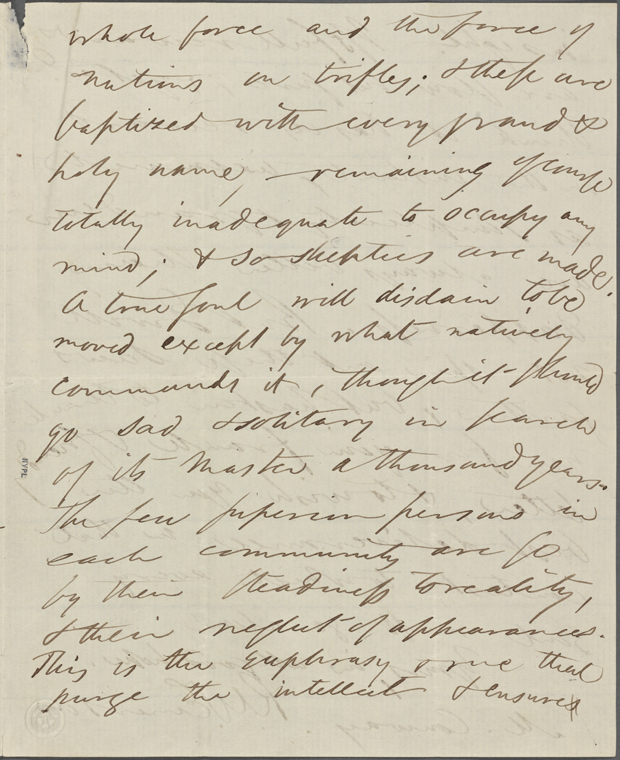 whole force and the force of
nations on trifles; & these are
baptized with every grand &
holy name, – remaining of course
totally inadequate to occupy any
mind; & so skeptics are made.
A true soul will disdain to be
moved except by what natively
commands it, though it should
go sad & solitary in search
of its master a thousand years.
The few superior persons in
each community are so
by their steadiness to reality,
& their neglect of appearances.
This is the euphrasy & rue that
purge the intellect & ensure
NYPL